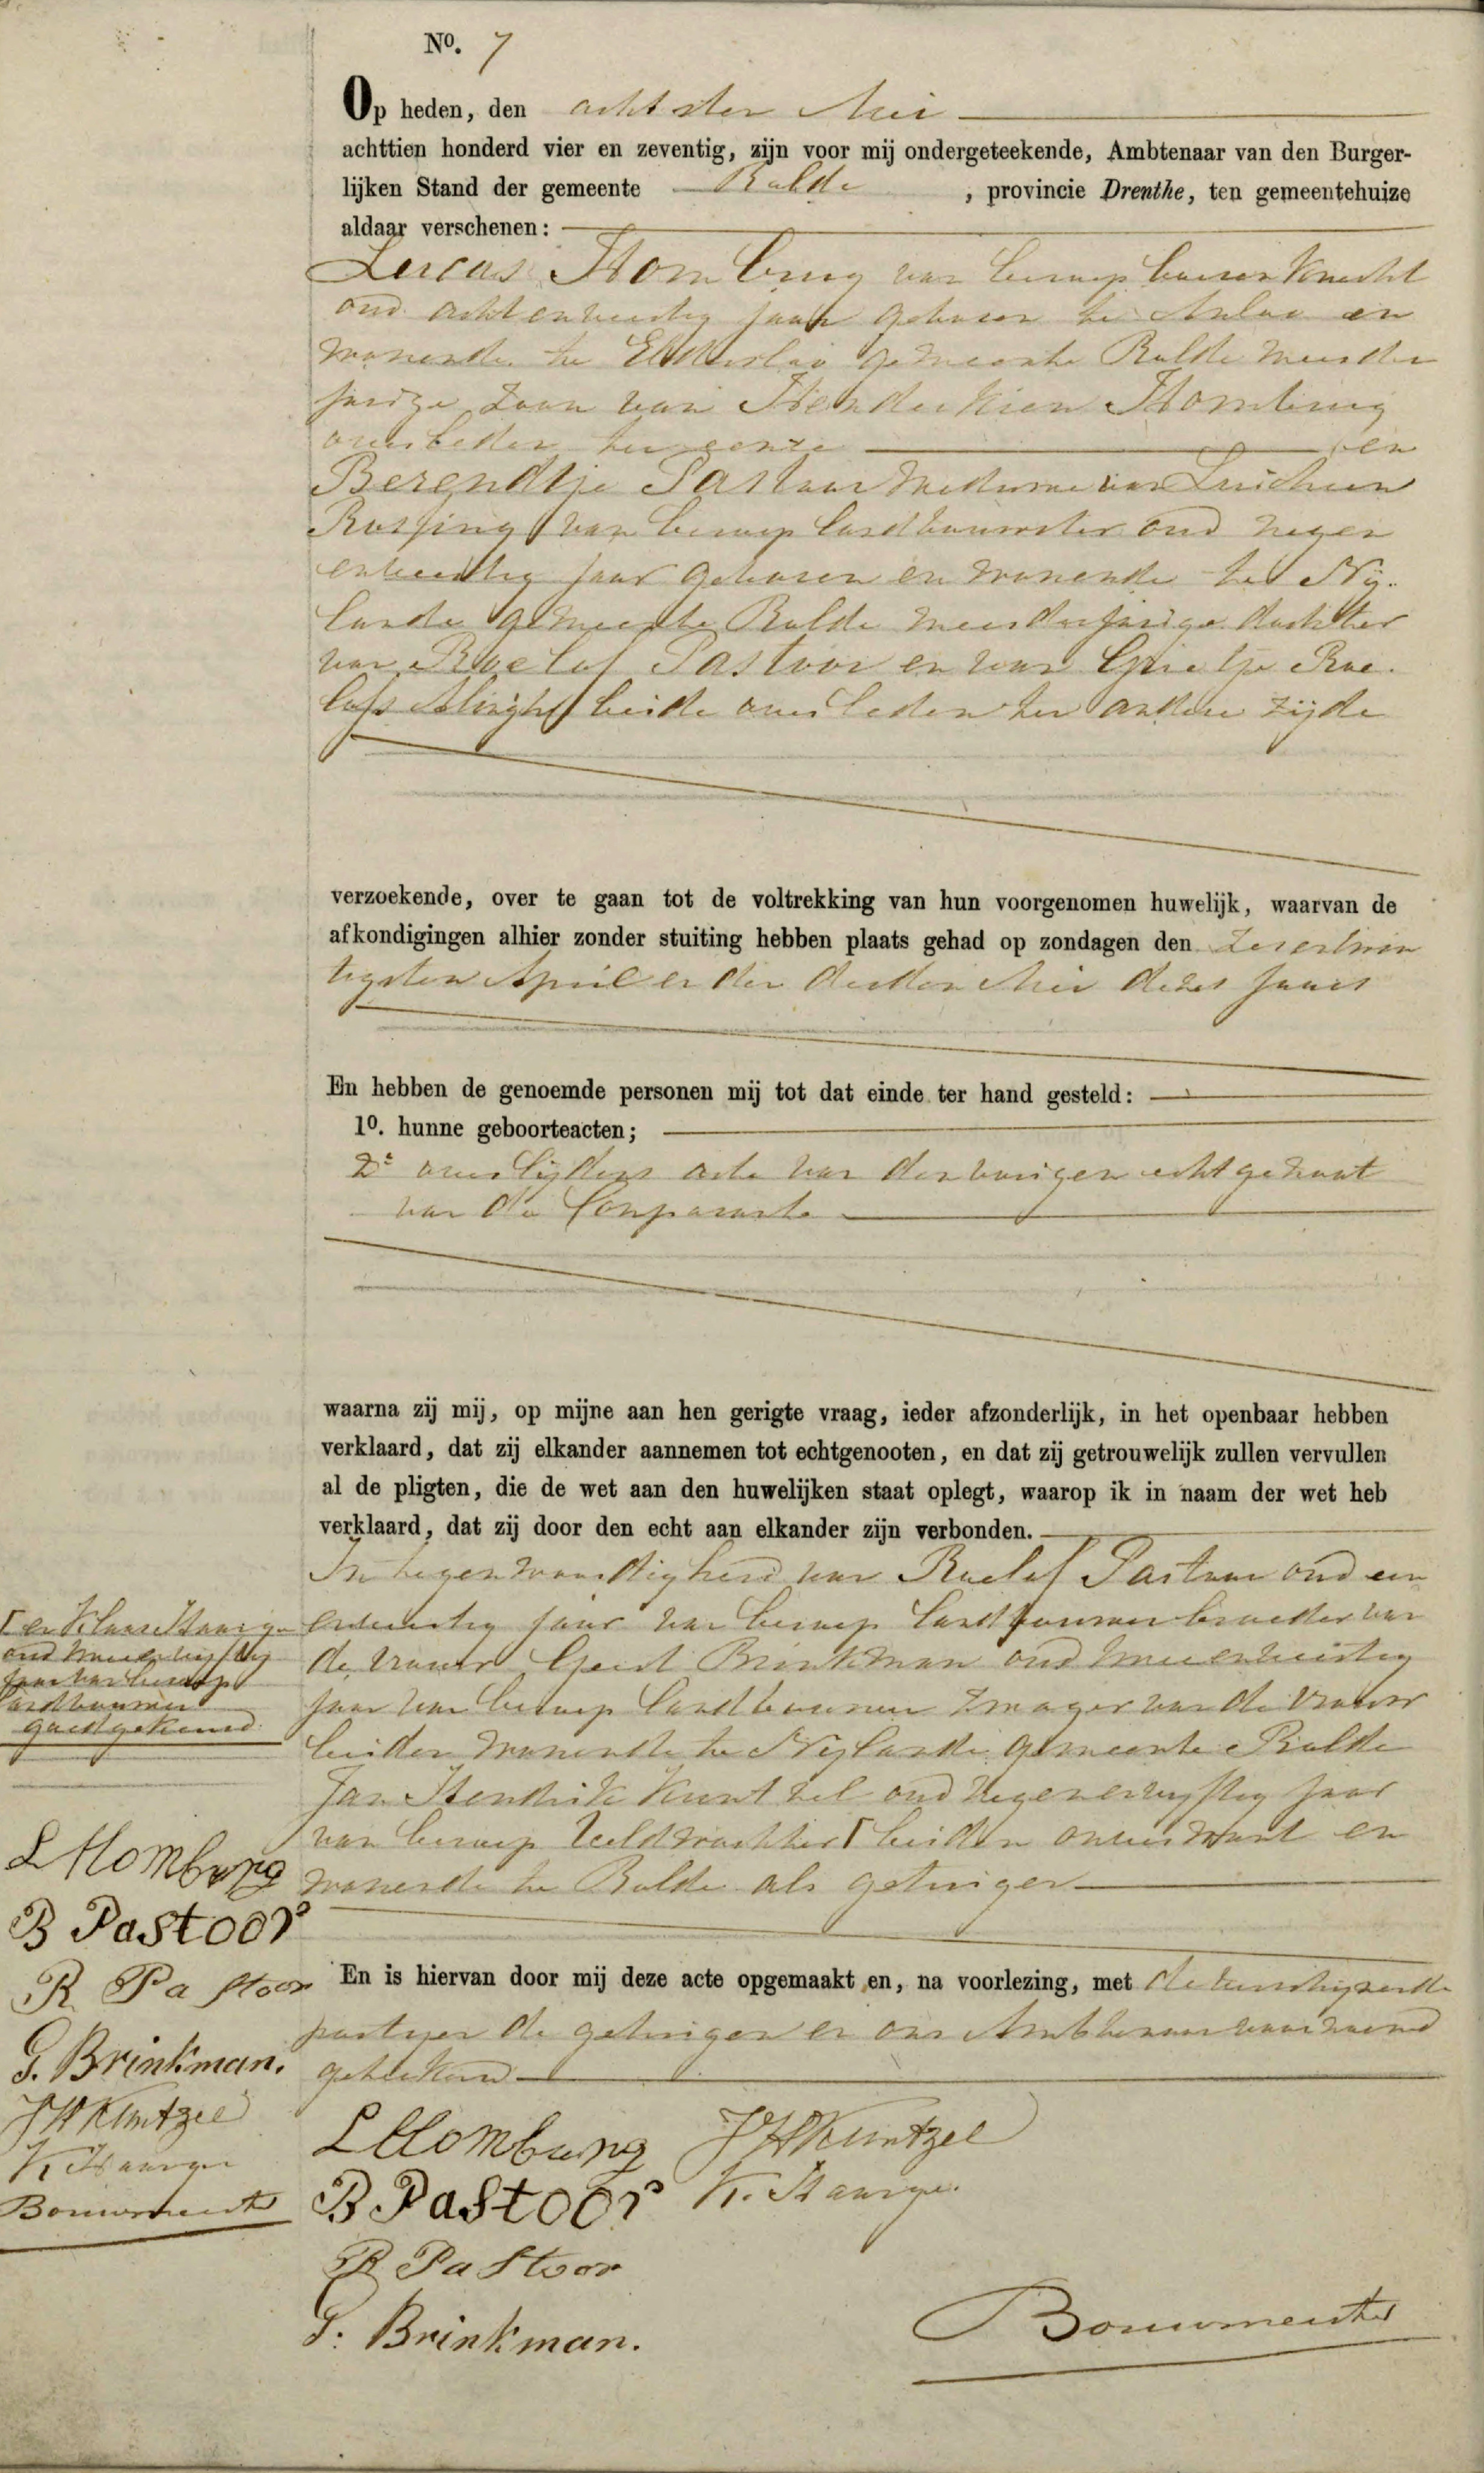 No. 7
Op heden, den achtsten Mei
achttien honderd vier en zeventig, zijn voor mij ondergeteekende, Ambtenaar van den Burger-
lijken Stand der gemeente Rolde, provincie Drenthe, ten gemeentehuize
aldaar verschenen:
Lucas Homburg van beroep boerenknecht
oud achtenveertig jaar geboren te Anloo en
wonende te Eldersloo gemeente Rolde meerder
jarige zoon van Henderkien Homburg
overleden ter eenre en
Berendtje Pastoor weduwe van Luichien
Rossing van beroep landbouwster oud negen
enveertig jaar geboren en wonende te Nij-
lande gemeente Rolde meerderjarige dochter
van Roelof Pastoor en van Grietje Roe-
lofs Alingh beide overleden ter andere zijde
verzoekende, over te gaan tot de voltrekking van hun voorgenomen huwelijk, waarvan de
afkondigingen alhier zonder stuiting hebben plaats gehad op zondagen den zesentwin
tigsten April en den derden Mei dezes jaars
En hebben de genoemde personen mij tot dat einde ter hand gesteld:
1º. hunne geboorteacten;
2º overlijdens acte van den vorigen echtgenoot
van de Comparante
waarna zij mij, op mijne aan hen gerigte vraag, ieder afzonderlijk, in het openbaar hebben
verklaard, dat zij elkander aannemen tot echtgenooten, en dat zij getrouwelijk zullen vervullen
al de pligten, die de wet aan den huwelijken staat oplegt, waarop ik in naam der wet heb
verklaard, dat zij door den echt aan elkander zijn verbonden.
In tegenwoordigheid van Roelof Pastoor oud een
enveertig jaar van beroep landbouwer broeder van
de vrouw Geert Brinkman oud tweeenveertig
jaar van beroep landbouwer zwager van de vrouw
beiden wonende te Nijlande gemeente Rolde
Jan Hendrik Kuntzel oud negenenvyftig jaar
van beroep veldwachter Γ beiden onverwant en
wonende te Rolde als getuigen
Γ en Klaas Haange
oud tweeenvyftig
jaar van beroep
landbouwer
goedgekeurd
L Homburg
B Pastoor
R Pastoor
G. Brinkman.
JH Kuntzel
K. Haange
Bouwmeester
En is hiervan door mij deze acte opgemaakt en, na voorlezing, met de
partyen de getuigen en ons Ambtenaar voornoemd
geteekend
L Homburg JH Kuntzel
B Pastoor K. Haange
R Pastoor
G. Brinkman.
Bouwmeester